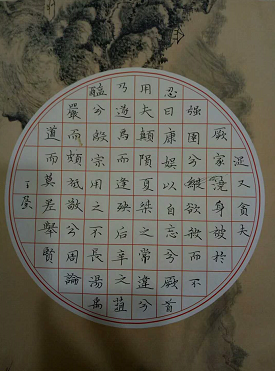 浞又貪夫
厥家澆身被於
強圉兮縱欲殺而不
忍日康娛以自忘兮厥首
用夫顛隕夏桀之常違兮
乃遂焉而逢殃后辛之菹
醢兮殷宗用之不長湯禹
嚴而頗祗敬兮周論
道而莫差舉賢